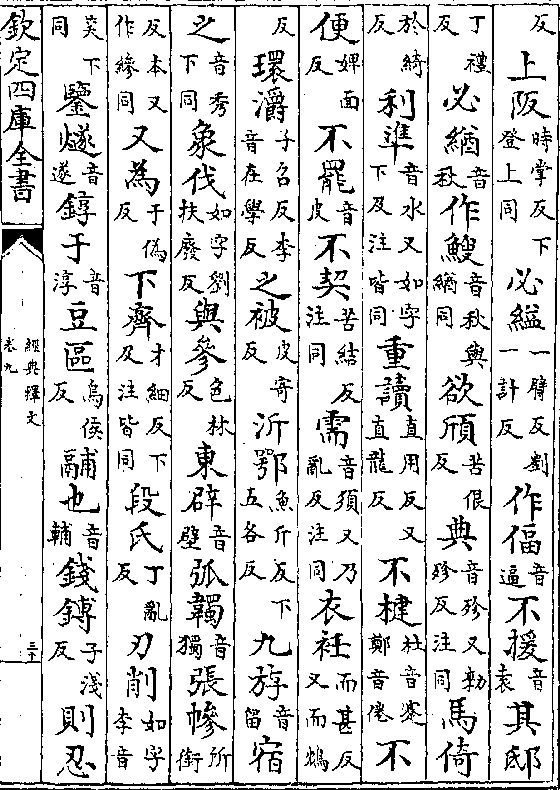 反上阪時掌反下登上同必縊一臂反劉一計反作偪音逼不援音袁其邸
丁禮反必緧音秋作鰌音秋與緧同欲頎苦佷反典音殄又勑殄反注同馬倚
於綺反利準音水又如字下及注皆同重讀直用反又直龍反不楗杜音蹇鄭音倦不
便婢面反不罷音皮不契苦結反注同需音須又乃亂反注同衣衽而甚反又而鴆
反環灂子召反李音在學反之被皮寄反沂鄂魚斤反下五各反九斿音留宿
之音秀下同象伐如字劉扶廢反與參色林反東辟音壁弧韣音獨張幓所銜
反本又作縿同又為于偽反下齊才細反下及注皆同段氏丁亂反刃削如字李音
笑下同鑒燧音遂錞于音淳豆區烏侯反鬴也音輔錢鎛子淺反則忍
欽定四庫全書
經典釋文
卷九
三十